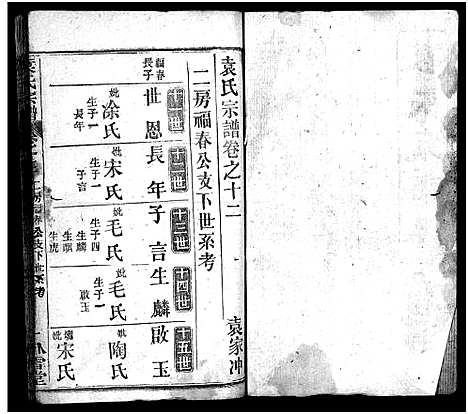 袁氏宗譜卷之十二
袁家冲
二房福春公支下世系考
十一世
十二世
十三世
十四世
十五世
福春
長子
世恩
長年
子言
生麟
啟玉
妣
涂氏
生子一
長年
妣
宋氏
生子一
子言
妣
毛氏
生子四
生麟
生虎
妣
毛氏
生子一
啟玉
妣
陶氏
宋氏
二房福春公支下世系考
一
卧雪堂